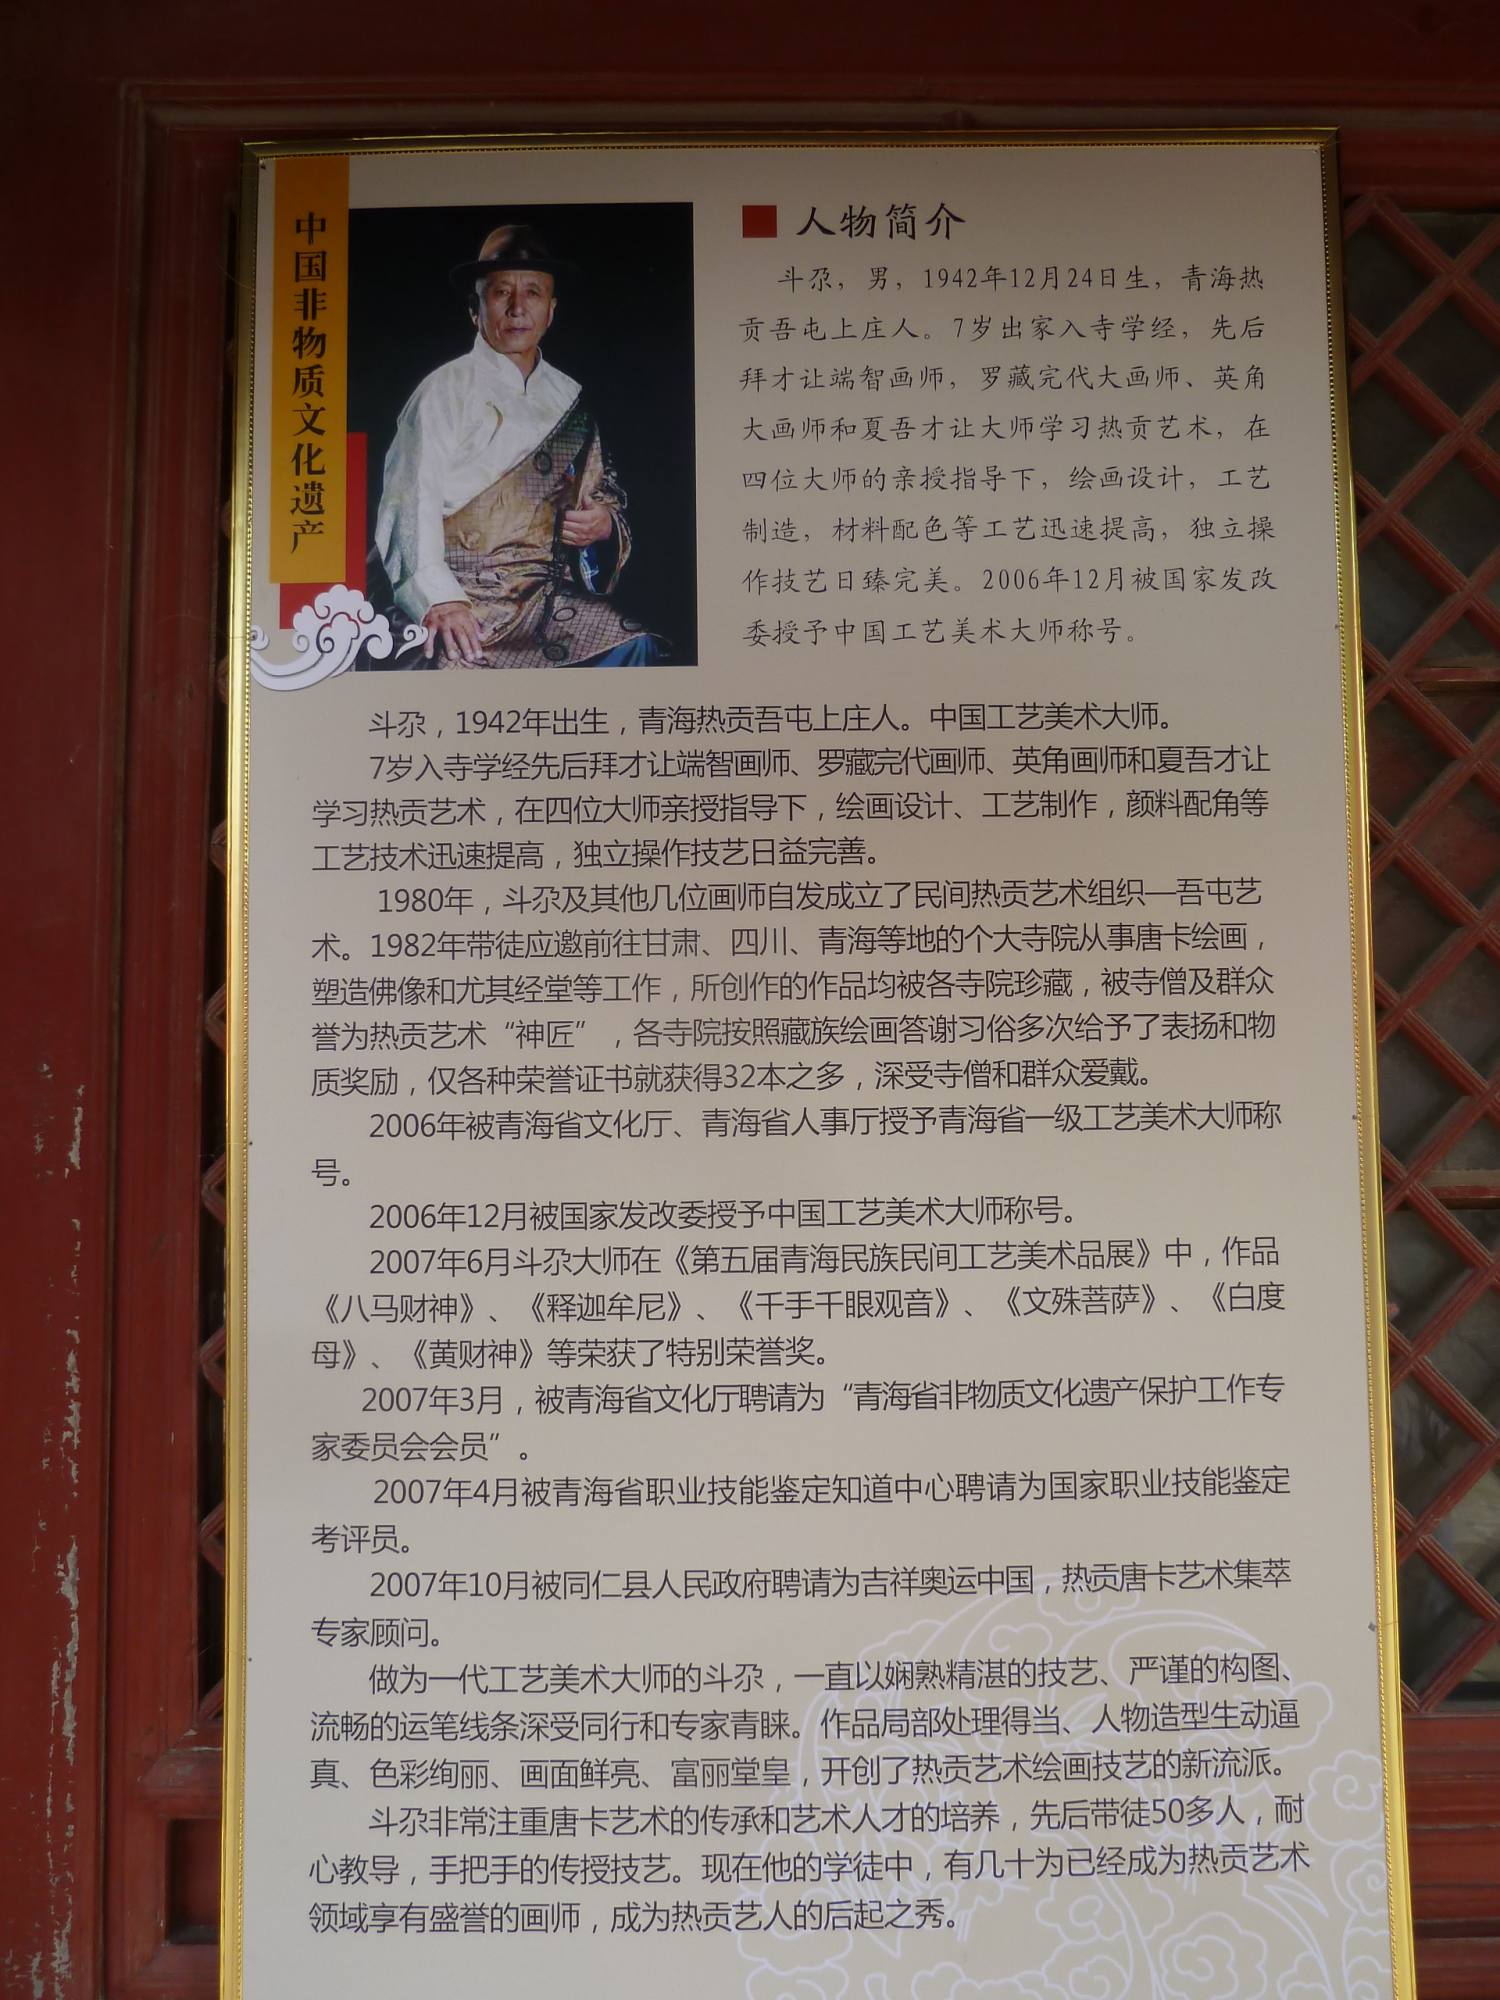 中国非物质文化遗产
人物简介
斗尕，男，1942年12月24日生，青海热
贡吾屯上庄人。7岁出家入寺学经，先后
拜才让端智画师，罗藏完代大画师、英角
大画师和夏吾才让大师学习热贡艺术，在
四位大师的亲授指导下，绘画设计，工艺
制造，材料配色等工艺迅速提高，独立操
作技艺日臻完美。2006年12月被国家发改
委授予中国工艺美术大师称号。
斗尕，1942年出生，青海热贡吾屯上庄人。中国工艺美术大师。
7岁入寺学经先后拜才让端智画师、罗藏完代画师、英角画师和夏吾才让
学习热贡艺术，在四位大师亲授指导下，绘画设计、工艺制作，颜料配角等
工艺技术迅速提高，独立操作技艺日益完善。
1980年，斗尕及其他几位画师自发成立了民间热贡艺术组织—吾屯艺
术。1982年带徒应邀前往甘肃、四川、青海等地的个大寺院从事唐卡绘画，
塑造佛像和尤其经堂等工作，所创作的作品均被各寺院珍藏，被寺僧及群众
誉为热贡艺术“神匠”，各寺院按照藏族绘画答谢习俗多次给予了表扬和物
质奖励，仅各种荣誉证书就获得32本之多，深受寺僧和群众爱戴。
2006年被青海省文化厅、青海省人事厅授予青海省一级工艺美术大师称
号。
2006年12月被国家发改委授予中国工艺美术大师称号。
2007年6月斗尕大师在《第五届青海民族民间工艺美术品展》中，作品
《八马财神》、《释迦牟尼》、《千手千眼观音》、《文殊菩萨》、《白度
母》、《黄财神》等荣获了特别荣誉奖。
2007年3月，被青海省文化厅聘请为“青海省非物质文化遗产保护工作专
家委员会会员”。
2007年4月被青海省职业技能鉴定知道中心聘请为国家职业技能鉴定
考评员。
2007年10月被同仁县人民政府聘请为吉祥奥运中国，热贡唐卡艺术集萃
专家顾问。
做为一代工艺美术大师的斗尕，一直以娴熟精湛的技艺、严谨的构图、
流畅的运笔线条深受同行和专家青睐。作品局部处理得当、人物造型生动逼
真、色彩绚丽、画面鲜亮、富丽堂皇，开创了热贡艺术绘画技艺的新流派。
斗尕非常注重唐卡艺术的传承和艺术人才的培养，先后带徒50多人，耐
心教导，手把手的传授技艺。现在他的学徒中，有几十为已经成为热贡艺术
领域享有盛誉的画师，成为热贡艺人的后起之秀。